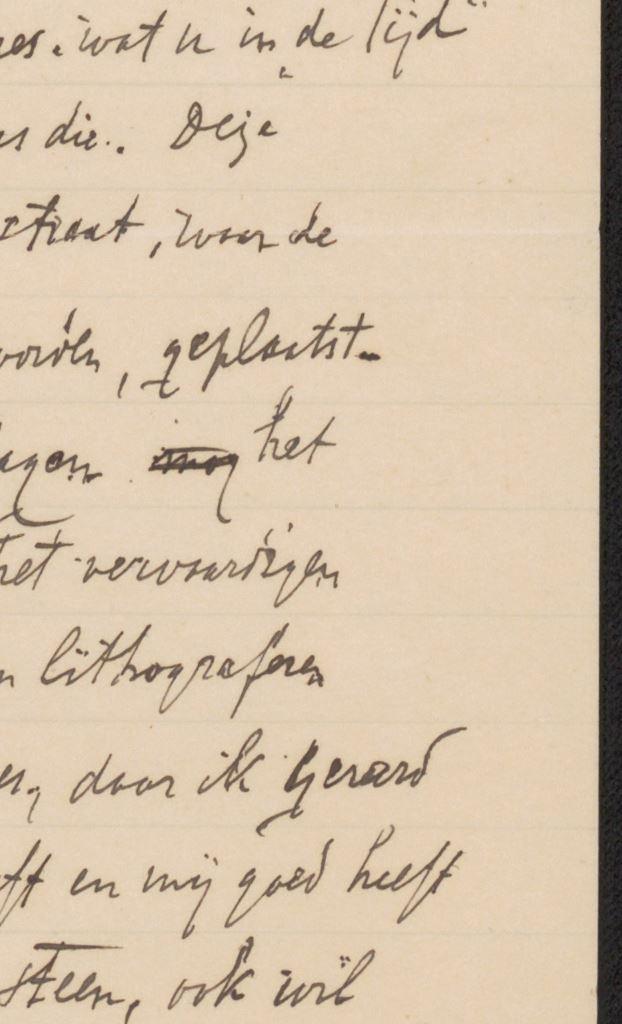 es. wat u in de tijd
es die. Deze
straat, waar de
worden, geplaatst.
agen mog het
het vervaardigen
n lithograferen
es, daar ik Gerard
eft en mij goed heeft
steen, ook wil